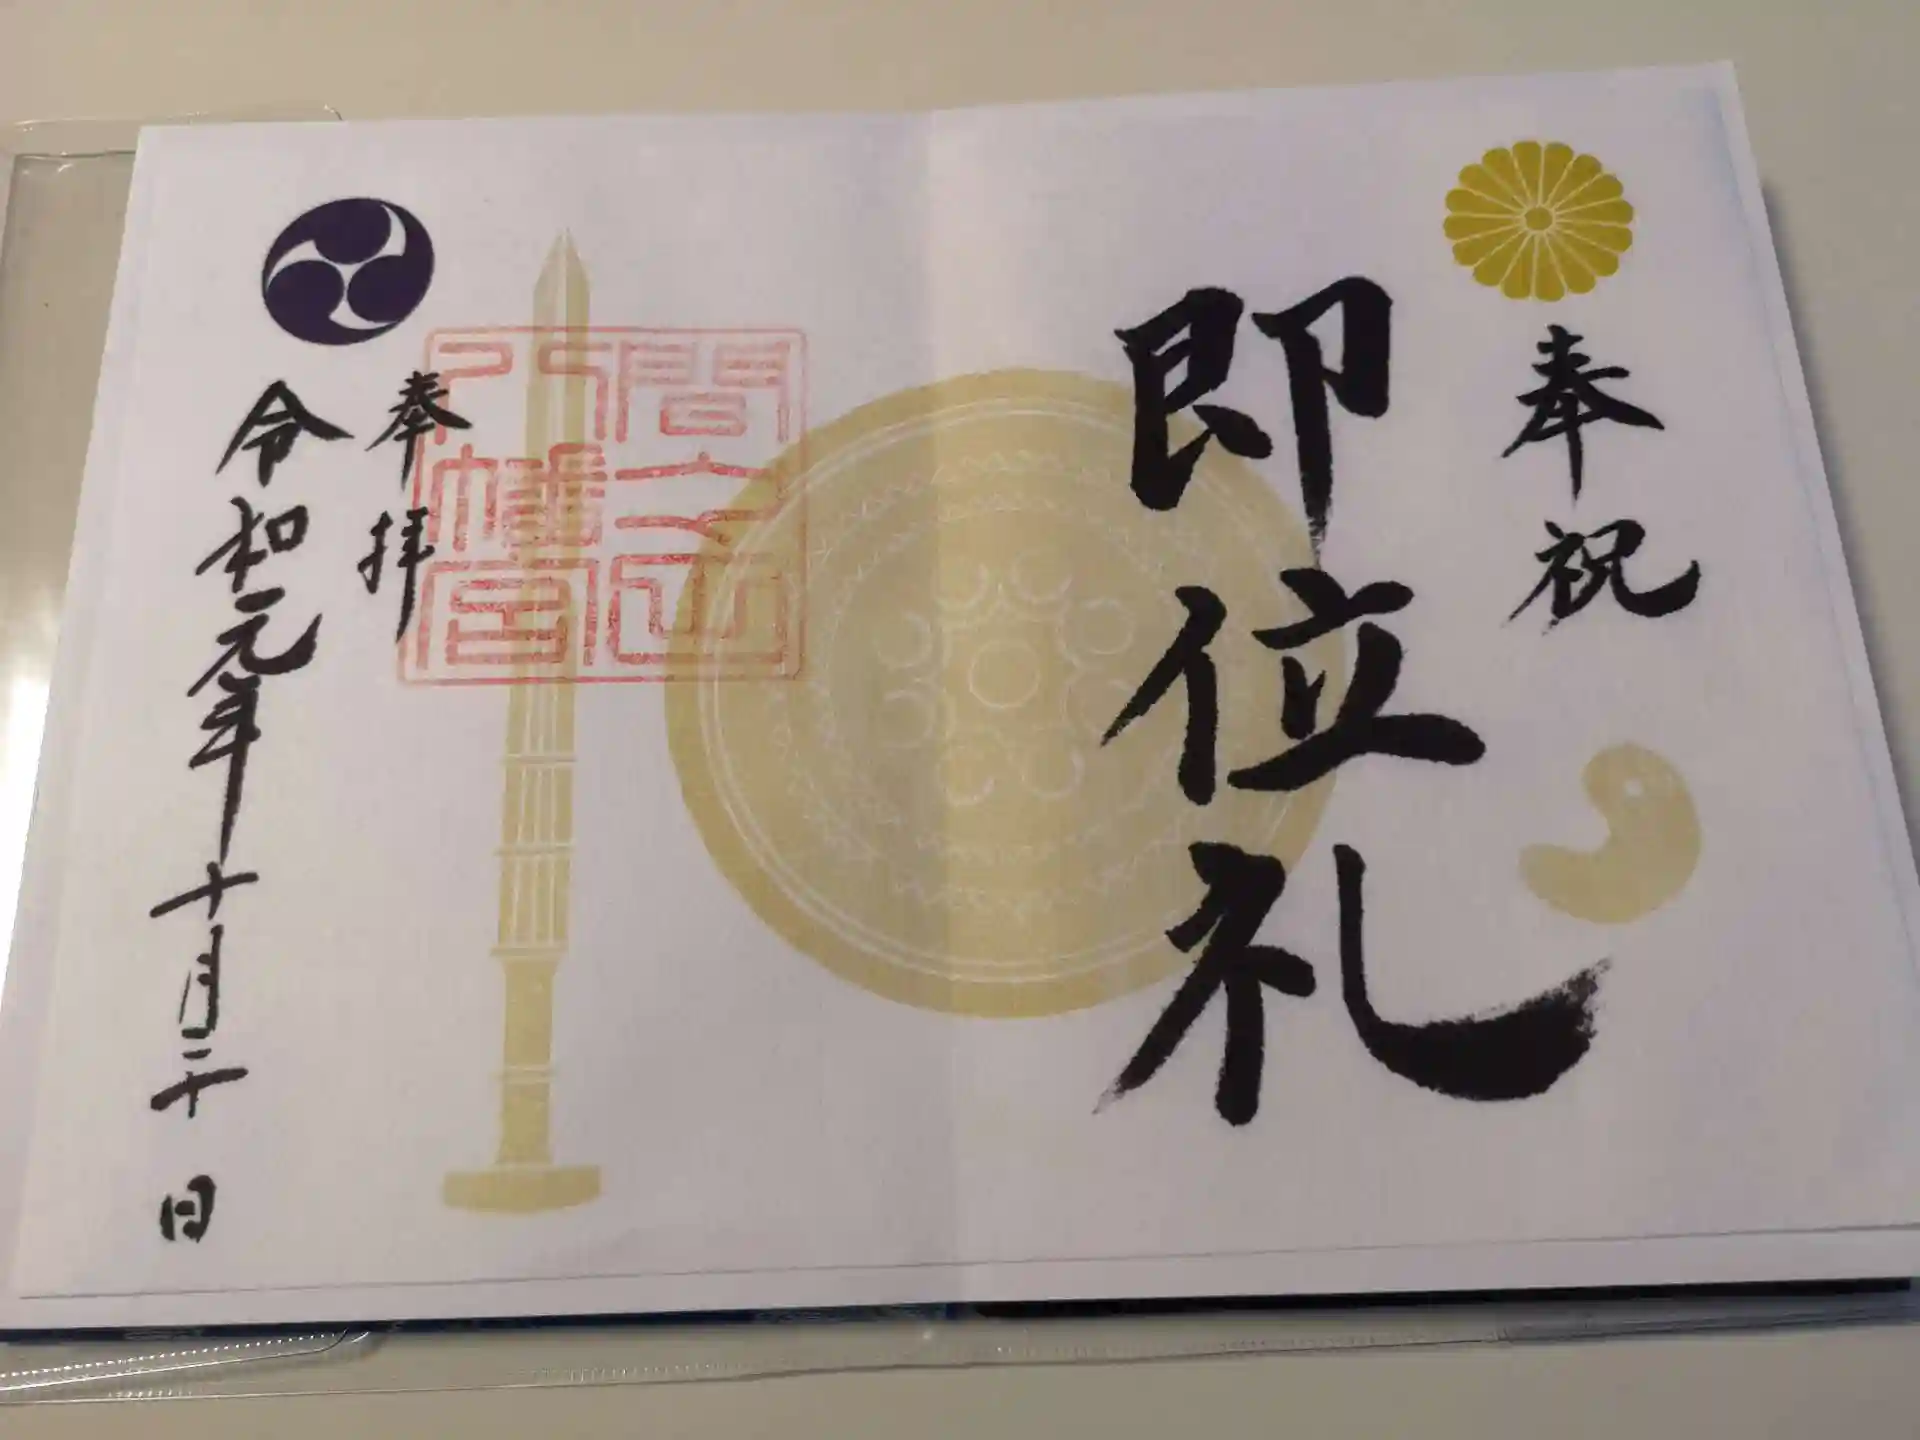 奉祝
即位礼
八幡宮
奉拝
令和元年十月二十日